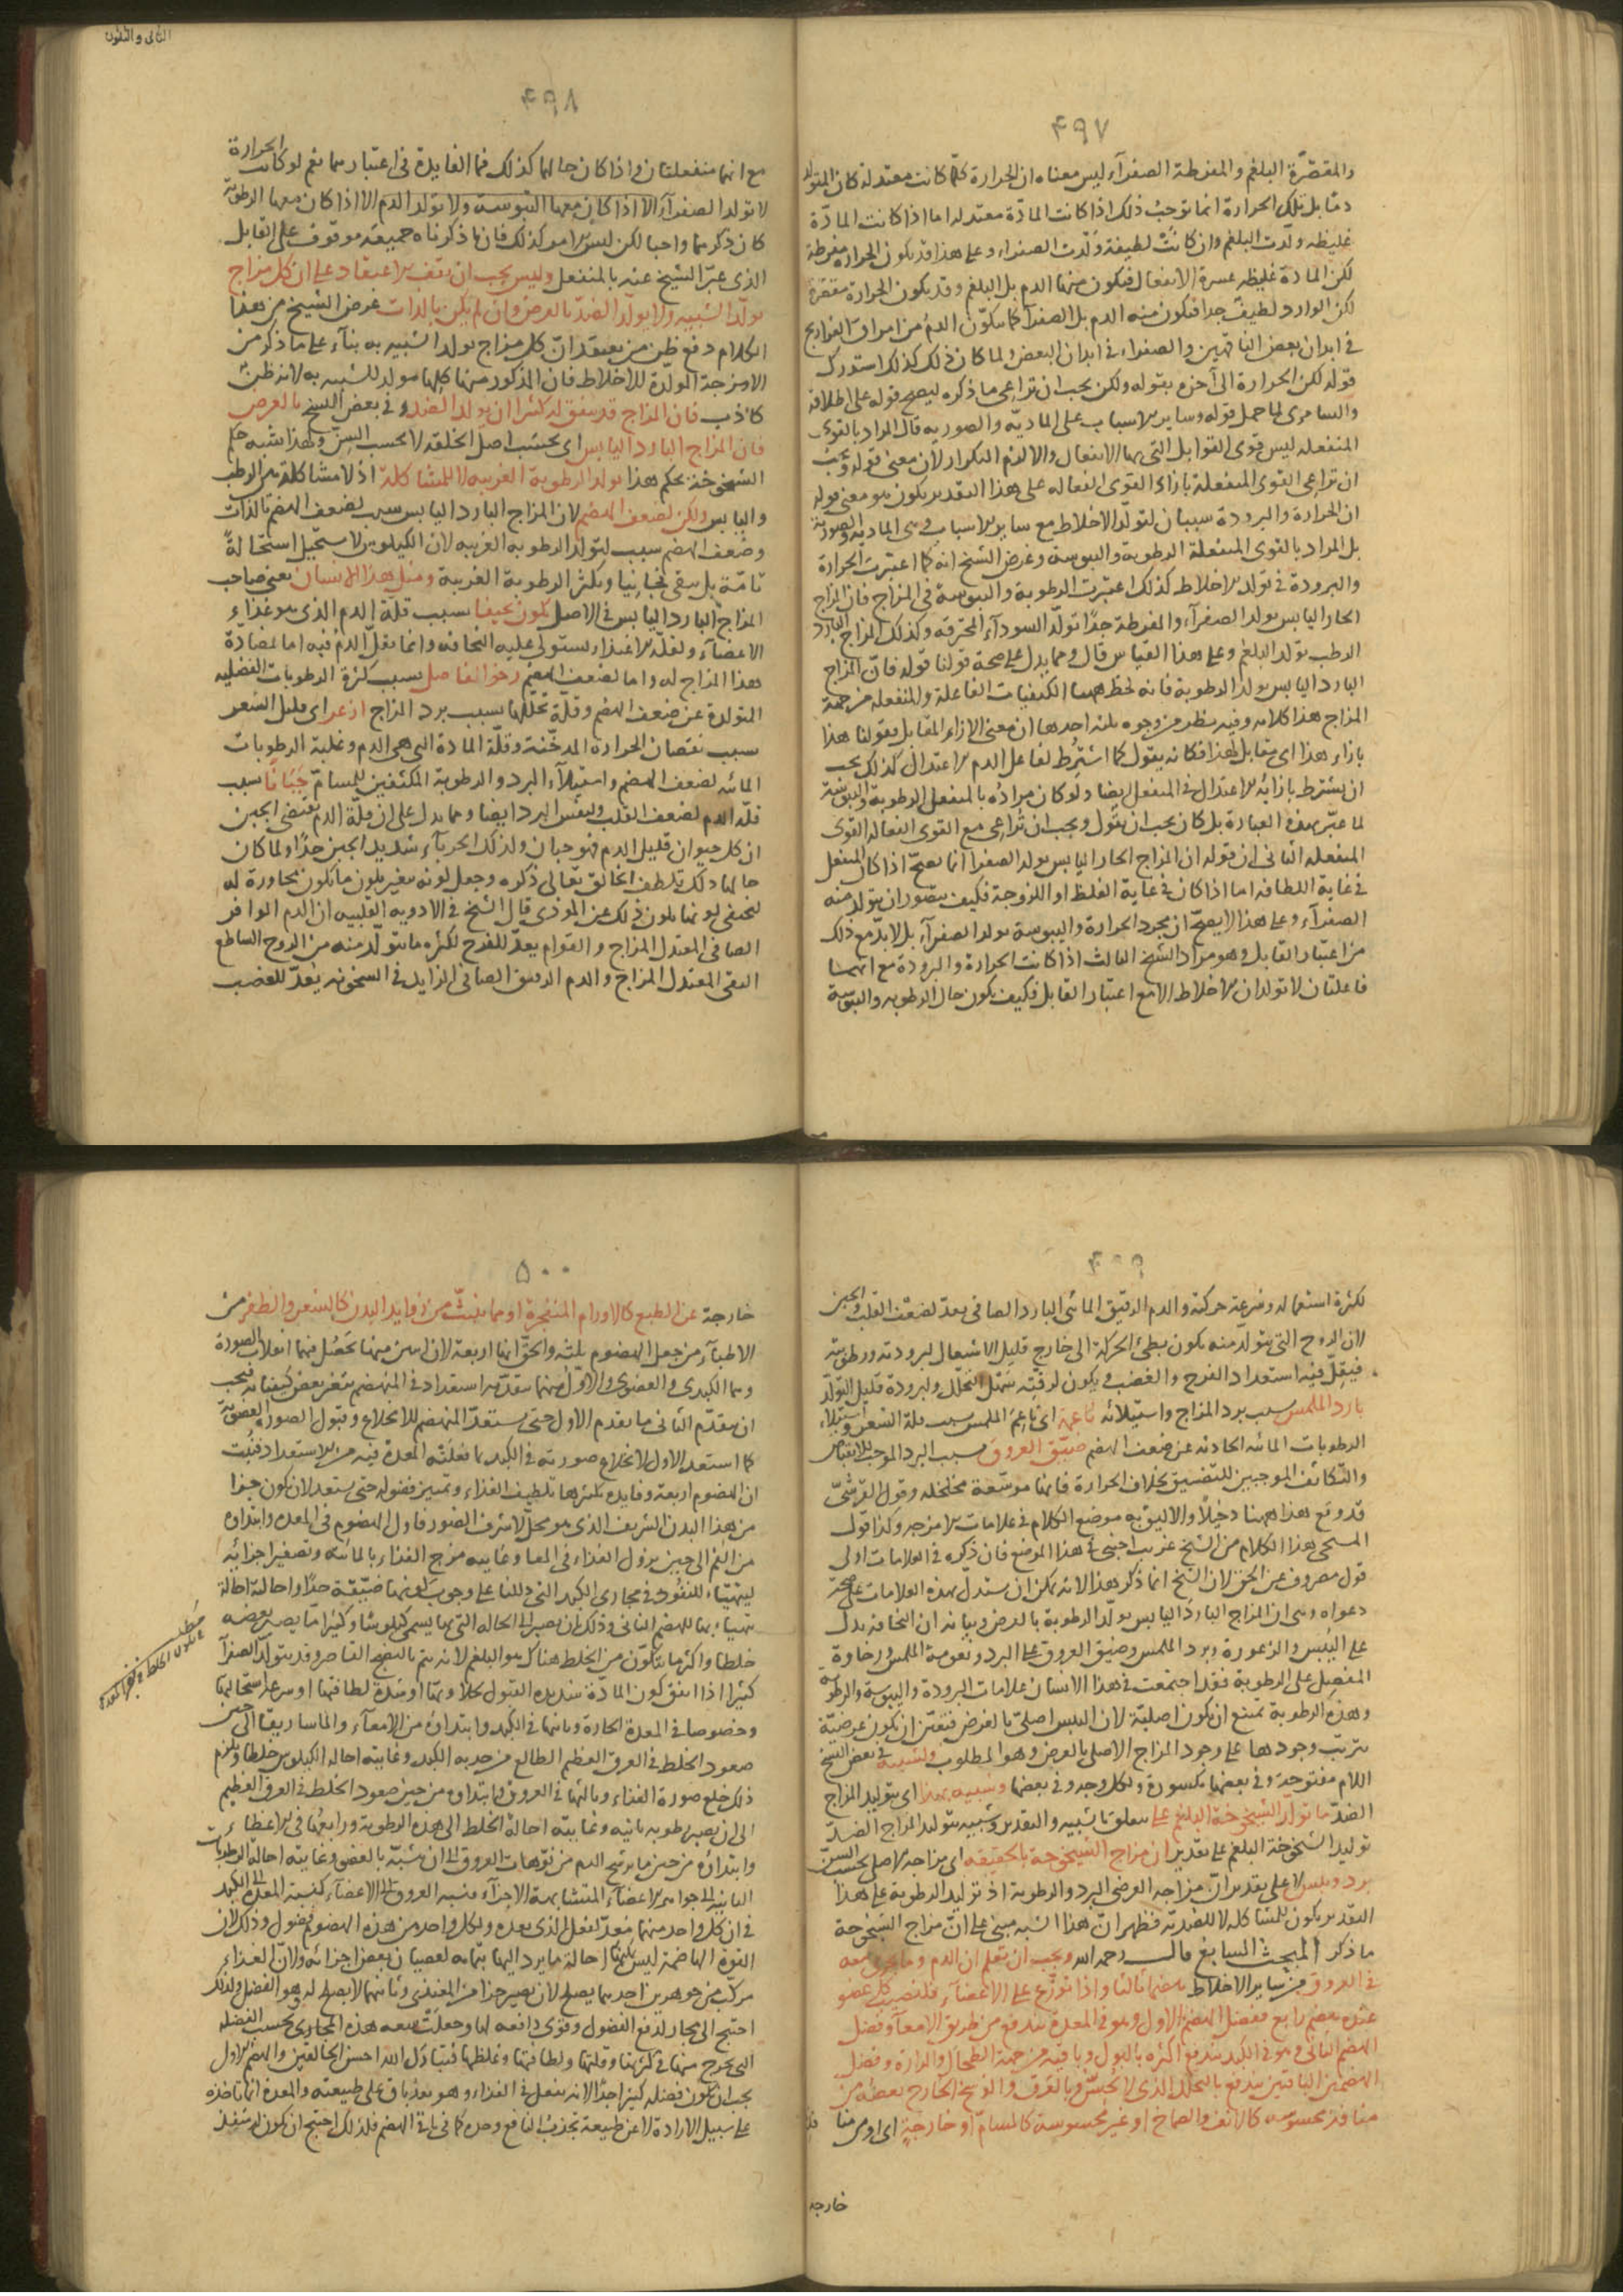 ٤٩٧
والمقصّرة البلغم والمفرطة الصفرآء ليس معناه ان الحرارة كلّما كانت معتدلة كان المتولد
مقابل تلك الحرارة انما توجب ذلك اذا كانت المادّة معتدلة اما اذا كانت المادّة
غليظه ولّدت البلغم وان كانت لطيفة ولّدت الصفراء وعلى هذا قد يكون الحرارة مفرطة
لكن المادة غليظه عسرة الانفعال فيكون منها الدم بل البلغم وقد يكون الحرارة مقصرة
لكن الوارد لطيف جدا فيكون منه الدم بل الصفرآء كما يتكوّن الدم من امراق الفراريج
فى ابدان بعض الناقهين والصفراء فى ابدان البعض ولما كان ذلك كذلك استدرك
قوله لكن الحرارة الى آخره بقوله ولكن يجب ان تراعى ما ذكره ليصح قوله على اطلاقه
والسامرى لما حمل قوله وساير الاسباب على الماديّه والصوريه قال المراد بالقوى
المنفعله ليس قوى القوابل التى بها الانفعال والا لزم التكرار لان معنى قوله ويجب
ان تراعى القوى المنفعلة بازاء القوى الفعاله على هذا التقدير يكون هو معنى قوله
ان الحرارة والبرودة سببان لتولّد الاخلاط مع ساير الاسباب وهى الماديه والصورية
بل المراد بالقوى المنفعلة الرطوبة واليبوسة وغرض الشيخ انه كما اعتبرت الحرارة
والبرودة فى تولد الاخلاط كذلك اعتبرت الرطوبة واليبوسة فى المزاج فان المزاج
الحار اليابس يولد الصفرآء والمفرطة جدّا تولّد السودآء المحترقه وكذلك المزاج البارد
الرطب تولّد البلغم وعلى هذا القياس قال ومما يدل على صحة قولنا قوله فانّ المزاج
البارد اليابس يولد الرطوبة فانه لحظ ههنا الكيفيات الفاعلة والمنفعله من جهة
المزاج هذا كلامه وفيه نظر من وجوه ثلثه احدها ان معنى الازاء المقابل فقولنا هذا
بازاء هذا اى مقابل لهذا فكانه يقول كما اشترط لفاعل الدم الاعتدال كذلك يجب
ان يشترط بازائه الاعتدال فى المنفعل ايضا ولو كان مراده بالمنفعل الرطوبة واليبوسة
لما عبّر بهذه العبارة بل كان يجب ان يقول ويجب ان تُراعى مع القوى الفعاله القوى
المنفعله الثانى ان قوله ان المزاج الحار اليابس يولد الصفرا انما يصحّ اذا كان المنفعل
فى غاية اللطافه اما اذا كان فى غاية الغلظ او اللزوجة فكيف يتصور ان يتولد منه
الصفرآء وعلى هذا لا يصحّ ان مجرد الحرارة واليبوسة يولد الصفرآء بل لا بدّ مع ذلك
من اعتبار القابل وهو مراد الشيخ الثالث اذا كانت الحرارة والبرودة مع انهما
فاعلتان لا تولدان الاخلاط الا مع اعتبار القابل فكيف يكون حال الرطوبه واليبوسة
الثانى والثلثون
٤٩٨
مع انهما منفعلتان واذا كان حالهما كذلك فما الفايدة فى اعتبارهما نعم لو كانت الحرارة
لا تولد الصفرآء الا اذا كان معها اليبوسة ولا تولد الدم الا اذا كان معها الرطوبة
كان ذكرهما واجبا لكن ليس الامر كذلك فان ما ذكرناه جميعه موقوف على القابل
الذى عبّر الشيخ عنه بالمنفعل وليس يجب ان يقف الاعتقاد على ان كل مزاج
يولّد الشبيه ولا يولّد الضدّ بالعرض وان لم يكن بالذات غرض الشيخ من هذا
الكلام دفع ظن من يعتقد انّ كل مزاج يولد الشبيه به بنآء على ما ذكر من
الامزجة المولّدة للاخلاط فان المذكور منها كلها مولد للشبيه به لانه ظنّ
كاذب فان المزاج قد يتفق له كثيرا ان يولد الضد وفى بعض النسخ بالعرض
فان المزاج البارد اليابس اى بحسب اصل الخلقه لا بحسب السن ولهذا شبه حكم
الشيخوخة بحكم هذا يولد الرطوبة الغريبه لا للمشاكلة اذ لا مشاكلة بين الرطب
واليابس ولكن لضعف الهضم لان المزاج البارد اليابس سبب لضعف الهضم بالذات
وضعف الهضم سبب لتولد الرطوبه الغريبه لان الكيلوس لا يستحيل استحالةً
تامّة بل يبقى فجا نِيّا ويكثر الرطوبة الغريبة ومثل هذا الانسان يعنى صاحب
المزاج البارد اليابس فى الاصل يكون نحيفا بسبب قلة الدم الذى هو غذاء
الاعضاء ولقلّة الاغتذاء يستولى عليه النحافه وانما يقلّ الدم فيه اما لمضادّة
هذا المزاج له واما لضعف الهضم رخو المفاصل بسبب كثرة الرطوبات الفضليه
المتولدة عن ضعف الهضم وقلّة تحلّلها بسبب برد المزاج ازعر اى قليل الشعر
بسبب نقصان الحرارة المدخّنة وقلّة المادة التى هى الدم وغلبة الرطوبات
المائيه لضعف الهضم واستيلآء البرد والرطوبة المكثفين للمسامّ جَبَانًا بسبب
قلّه الدم لضعف القلب ولنفس البرد ايضا ومما يدل على ان قلّة الدم يقتضى الجبن
ان كل حيوان قليل الدم فهو جبان ولذلك الحرباء شديد الجبن جدّا ولما كان
حالها ذلك تلطف الخالق تعالى ذكره وجعل لونه يتغير بلون ما يكون مجاورة له
ليختفى لونها بلون ذلك عن الموذى قال الشيخ فى الادويه القلبيه ان الدم الوافر
الصافى المعتدل المزاج والقوام يعدّ للفرح لكثره ما يتولّد منه من الروح الساطع
النقى المعتدل المزاج والدم الرقيق الصافى الزايد فى السخونه يُعدّ للغضب
٤٩٩
لكثرة استعماله وسرعة حركته والدم الرقيق المائى البارد الصافى يعدّ لضعف القلب والجبن
لان الروح التى يتولد منه يكون بطئ الحركة الى خارج قليل الاشتعال لبرودته ورطوبته
فيقلّ فيه استعداد الفرح والغضب ويكون لرقّته سَهْل التحلّل ولبرودة قليل التولّد
بارد الملمس بسبب برد المزاج واستيلائه ناعمة اى ناعِمُ الملمس بسبب قلة الشعر واستيلاء
الرطوبات المائيه الحادثه عن ضعف الهضم ضيّق العروق بسبب البرد الموجب للانقباض
والتكاثف الموجبين للتضييق بخلاف الحرارة فانها موسّعة مخلخله وقول القرشىّ
قد وقع هذا ههنا دخيلاً والاليق به موضع الكلام فى علامات الامزجه وكذا قول
المسيحى هذا الكلام من الشيخ غريب اجنبى فى هذا الموضع فان ذكره فى العلامات اولى
قول مصروف عن الحق لان الشيخ انما ذكر هذا لانه يمكن ان يستدل بهذه العلامات على صحّة
دعواه وهى ان المزاج البارد اليابس يولّد الرطوبة بالعرض وبيانه ان النحافه يدل
على اليُبس والزعورة وبرد الملمس وضيق العروق على البرد ونعومة الملمس ورخاوة
المفصل على الرطوبة فقد اجتمعت فى هذا الانسان علامات البرودة واليبوسة والرطوبة
وهذه الرطوبة تمتنع ان يكون اصليّة لان اليبس اصلىّ بالفرض فتعيّن ان يكون عرضيّة
يترتّب وجودها على وجود المزاج الاصلى بالعرض وهو المطلوب ولشبيه فى بعض النسخ
اللام مفتوحة وفى بعضها مكسورة ولكل وجه وفى بعضها وشبيه بهذا اى بتوليد المزاج
الضدّ ما تولد الشيخوخة البلغم على متعلق بالشبيه والتقدير وشبيه بتوليد المزاج الضدّ
توليد الشيخوخة البلغم على تقدير ان مزاج الشيخوخة بالحقيقه اى مزاجه الاصلى بحسب السن
برد ويبس لا على تقدير انّ مزاجه العرضى البرد والرطوبة اذ توليد الرطوبة على هذا
التقدير يكون للمشاكله لا للضديّه فظهر انّ هذا الشبه مبنى على انّ مزاج الشيخوخة
ما ذكر المبحث السابع قالـــ رحمه الله ويجب ان تعلم ان الدم وما يجرى معه
فى العروق من ساير الاخلاط هضما ثالثا واذا توزّع على الاعضآء فلنصيب كل عضو
عنده هضم رابع ففضل الهضم الاول وهو فى المعدة يندفع من طريق الامعآء وفضل
الهضم الثانى وهو فى الكبد يندفع اكثره بالبول وباقيه من جهة الطحال والمرارة وفضل
الهضمين الباقيين يندفع بالتحلّل الذى لا يُحَسّ وبالعرق والوسخ الخارج بعضه من
منافذ محسوسه كالانف والصماخ او غير محسوسة كالمسامّ او خارجة اى او من منا
خارجه
٥٠٠
خارجة عن الطبع كالاورام المنفجرة او مما ينبتّ من زوايد البدن كالشعر والظفر من
الاطبآء من جعل الهضوم ثلثه والحق انها اربعة لان اثنين منها تَحْصُل فيها انخلاع الصورة
وهما الكبدى والعضوى والاوّل منهما يتقدّمه استعداد فى المنهضم بتغير بعض كيفياته فيجب
ان يتقدّم الثانى ما يقدم الاول حتى يستعدّ المنهضم للانخلاع وقبول الصورة العضويّة
كما استعد الاول لانخلاع صورته فى الكبد بما فعلته المعدة فيه من الاستعداد فثبت
ان الهضوم اربعة وفايده كثرتها تلطيف الغذاء وتمييز فضوله حتى يستعد لان يكون جزا
من هذا البدن الشريف الذى هو محلّ لاشرف الصور فاول الهضوم فى المعده وابتداه
من الفم الى حين نزول الغذاء فى المعا وغايته مزج الغذاء بالمائية وتصغير اجزائه
ليتهيّاء للنفود فى مجارى الكبد التى دللنا على وجوب كونها ضيّقة جدّا واحالته احالة
يتهياء بها للهضم الثانى وذلك بان يصير الى الحالة التى بها يسمى كيلوسًا وكثيرا ما يصير بعضه
خلطا واكثر ما يتكوّن من الخلط هناك هو البلغم لانه يتم بالنضج القاصر وقد يتولّد الصفرآء
كثيرا اذا اتفق كون المادّة شديدة القبول كالحلاوتها او شدة لطافتها او سرعة استحالتها
وخصوصا فى المعدة الحارة وثانيها فى الكبد وابتداؤه من الامعآء والماساريقا الى حين
صعود الخلط فى العرق العظيم الطالع من حدبه الكبد وغايته احالة الكيلوس خلطا ويلزم
ذلك خلع صورة الغذاء وثالثها فى العروق وابتداؤه من حين صعود الخلط فى العرق العظيم
الى ان يصير رطوبه ثانيه وغايتة احالة الخلط الى هذه الرطوبة ورابعها فى الاعضاء
وابتداؤه من حين ما يرشح الدم من فوّهات العروق الى ان يتشبّه بالعضو وغايته احالة الرطوبات
الثانية الى جواهر الاعضآء المتشابهة الاجزآء فنسبة العروق الى الاعضآء كنسبة المعدة الى الكبد
فى ان كل واحد منهما يُعدّ لفعل الذى بعده ولكل واحد من هذه الهضوم فضول وذلك لان
القوة الهاضمة ليس يمكنها احالة ما يرد اليها بتمامه لعصيان بعض اجزائه ولانّ الغذاء
مركّب من جوهرين احدهما يصلح لان يصير جزا من المغتذى وثانيهما لا يصلح له وهو الفضل ولذلك
احتيج الى مجار لدفع الفضول وقوى دافعه لها وجعلت سعه هذه المجارى بحسب الفضله
التى يخرج منها فى كثرتها وقلتها ولطافتها وغلظها فتبارك الله احسن الخالقين والهضم الاول
يجب ان يكون فضله كثيرا جدّا لانه يفعل فى الغذاء وهو بعد باق على طبيعته والمعدة انما تاخذه
على سبيل الارادة لا عن طبيعة تجذب النافع وحده كما فى باقى الهضم فلذلك احتيج ان يكون له منفذ